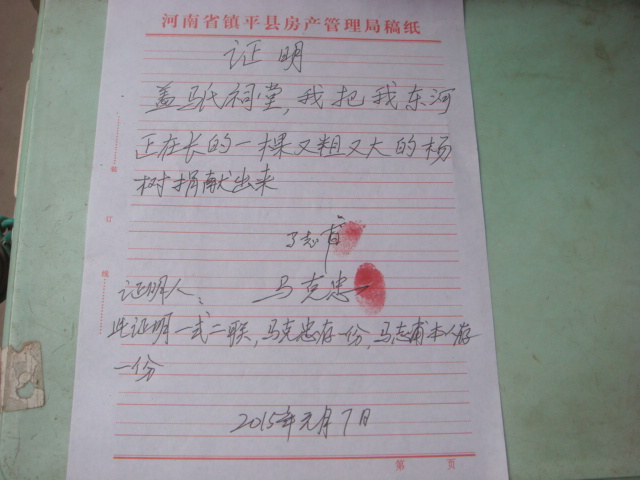 河南省镇平县房产管理局稿纸
证明
盖马氏祠堂，我把我东河
正在长的一棵又粗又大的杨
树捐献出来
装
订
马志甫
线
证明人： 马克忠
此证明一式二联，马克忠存一份，马志甫本人存
一份
2015年元月7日
第 页